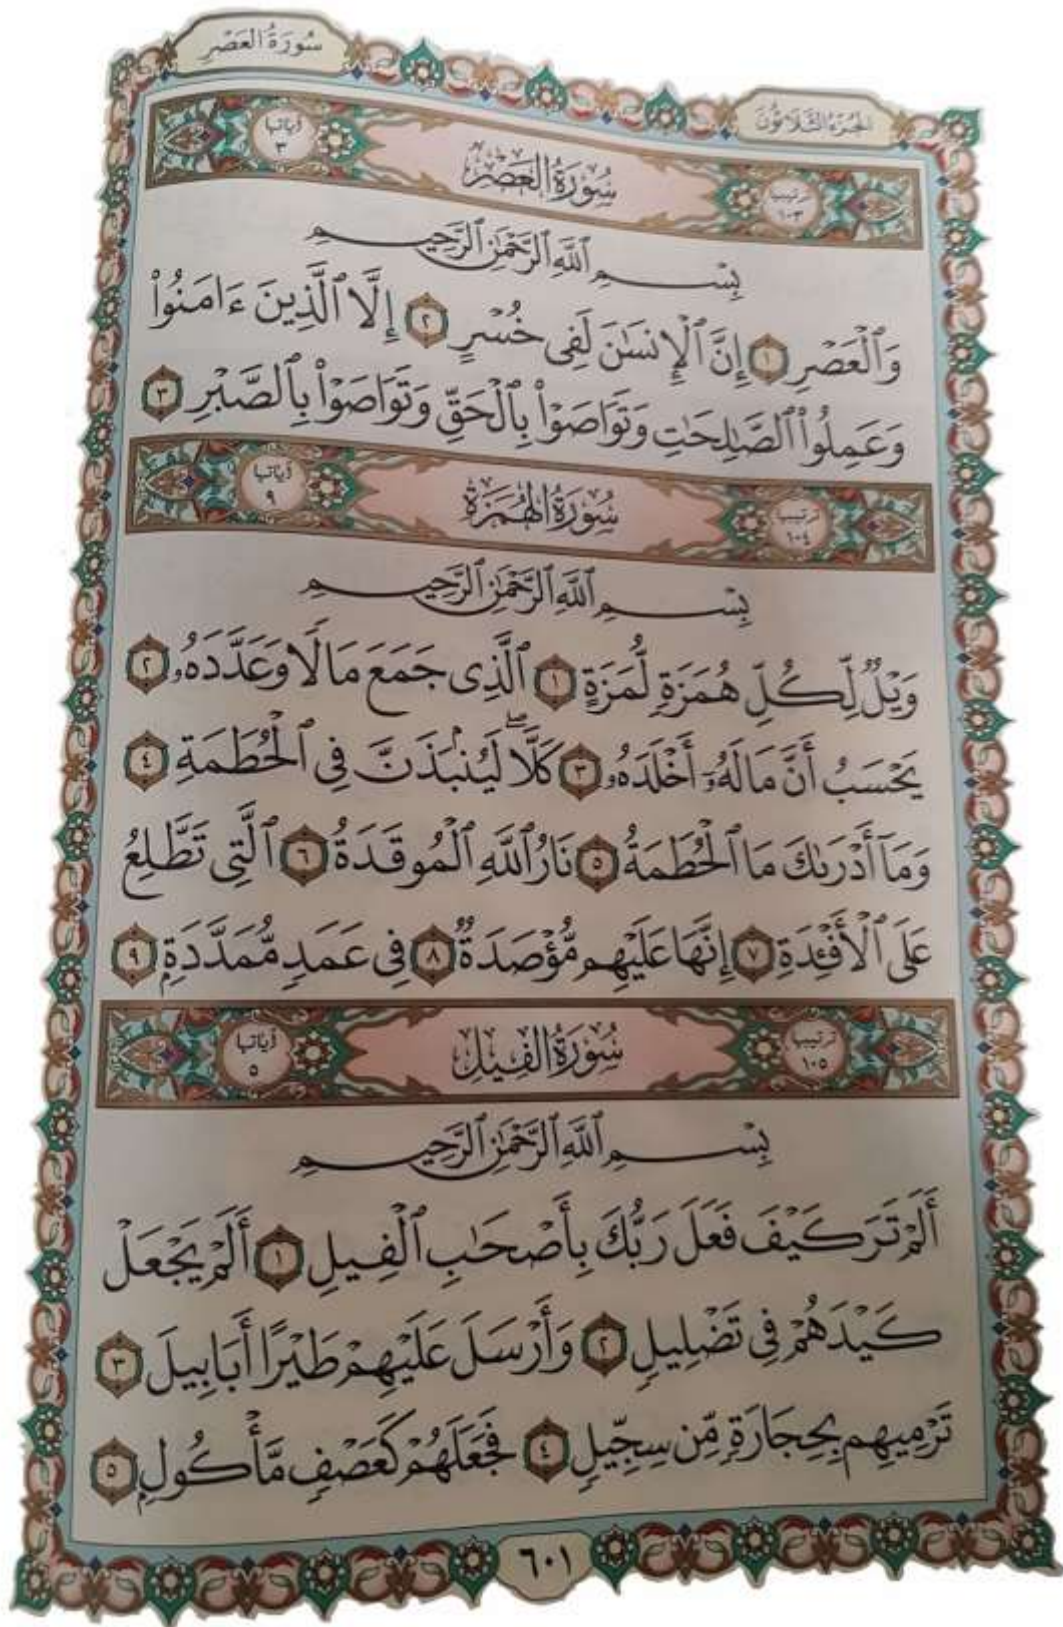 سُورَةُ العَصْرِ
الجُزْءُ الثَّلَاثُونَ
ترتيبها ١٠٣ سُورَةُ العَصْرِ آياتها ٣
بِسْمِ ٱللَّهِ ٱلرَّحْمَٰنِ ٱلرَّحِيمِ
وَٱلْعَصْرِ ١ إِنَّ ٱلْإِنسَٰنَ لَفِى خُسْرٍ ٢ إِلَّا ٱلَّذِينَ ءَامَنُوا۟
وَعَمِلُوا۟ ٱلصَّٰلِحَٰتِ وَتَوَاصَوْا۟ بِٱلْحَقِّ وَتَوَاصَوْا۟ بِٱلصَّبْرِ ٣
ترتيبها ١٠٤ سُورَةُ الهُمَزَةِ آياتها ٩
بِسْمِ ٱللَّهِ ٱلرَّحْمَٰنِ ٱلرَّحِيمِ
وَيْلٌ لِّكُلِّ هُمَزَةٍ لُّمَزَةٍ ١ ٱلَّذِى جَمَعَ مَالًا وَعَدَّدَهُۥ ٢
يَحْسَبُ أَنَّ مَالَهُۥٓ أَخْلَدَهُۥ ٣ كَلَّا ۖ لَيُنۢبَذَنَّ فِى ٱلْحُطَمَةِ ٤
وَمَآ أَدْرَىٰكَ مَا ٱلْحُطَمَةُ ٥ نَارُ ٱللَّهِ ٱلْمُوقَدَةُ ٦ ٱلَّتِى تَطَّلِعُ
عَلَى ٱلْأَفْـِٔدَةِ ٧ إِنَّهَا عَلَيْهِم مُّؤْصَدَةٌ ٨ فِى عَمَدٍ مُّمَدَّدَةٍۭ ٩
ترتيبها ١٠٥ سُورَةُ الفِيلِ آياتها ٥
بِسْمِ ٱللَّهِ ٱلرَّحْمَٰنِ ٱلرَّحِيمِ
أَلَمْ تَرَ كَيْفَ فَعَلَ رَبُّكَ بِأَصْحَٰبِ ٱلْفِيلِ ١ أَلَمْ يَجْعَلْ
كَيْدَهُمْ فِى تَضْلِيلٍ ٢ وَأَرْسَلَ عَلَيْهِمْ طَيْرًا أَبَابِيلَ ٣
تَرْمِيهِم بِحِجَارَةٍ مِّن سِجِّيلٍ ٤ فَجَعَلَهُمْ كَعَصْفٍ مَّأْكُولٍۭ ٥
٦٠١